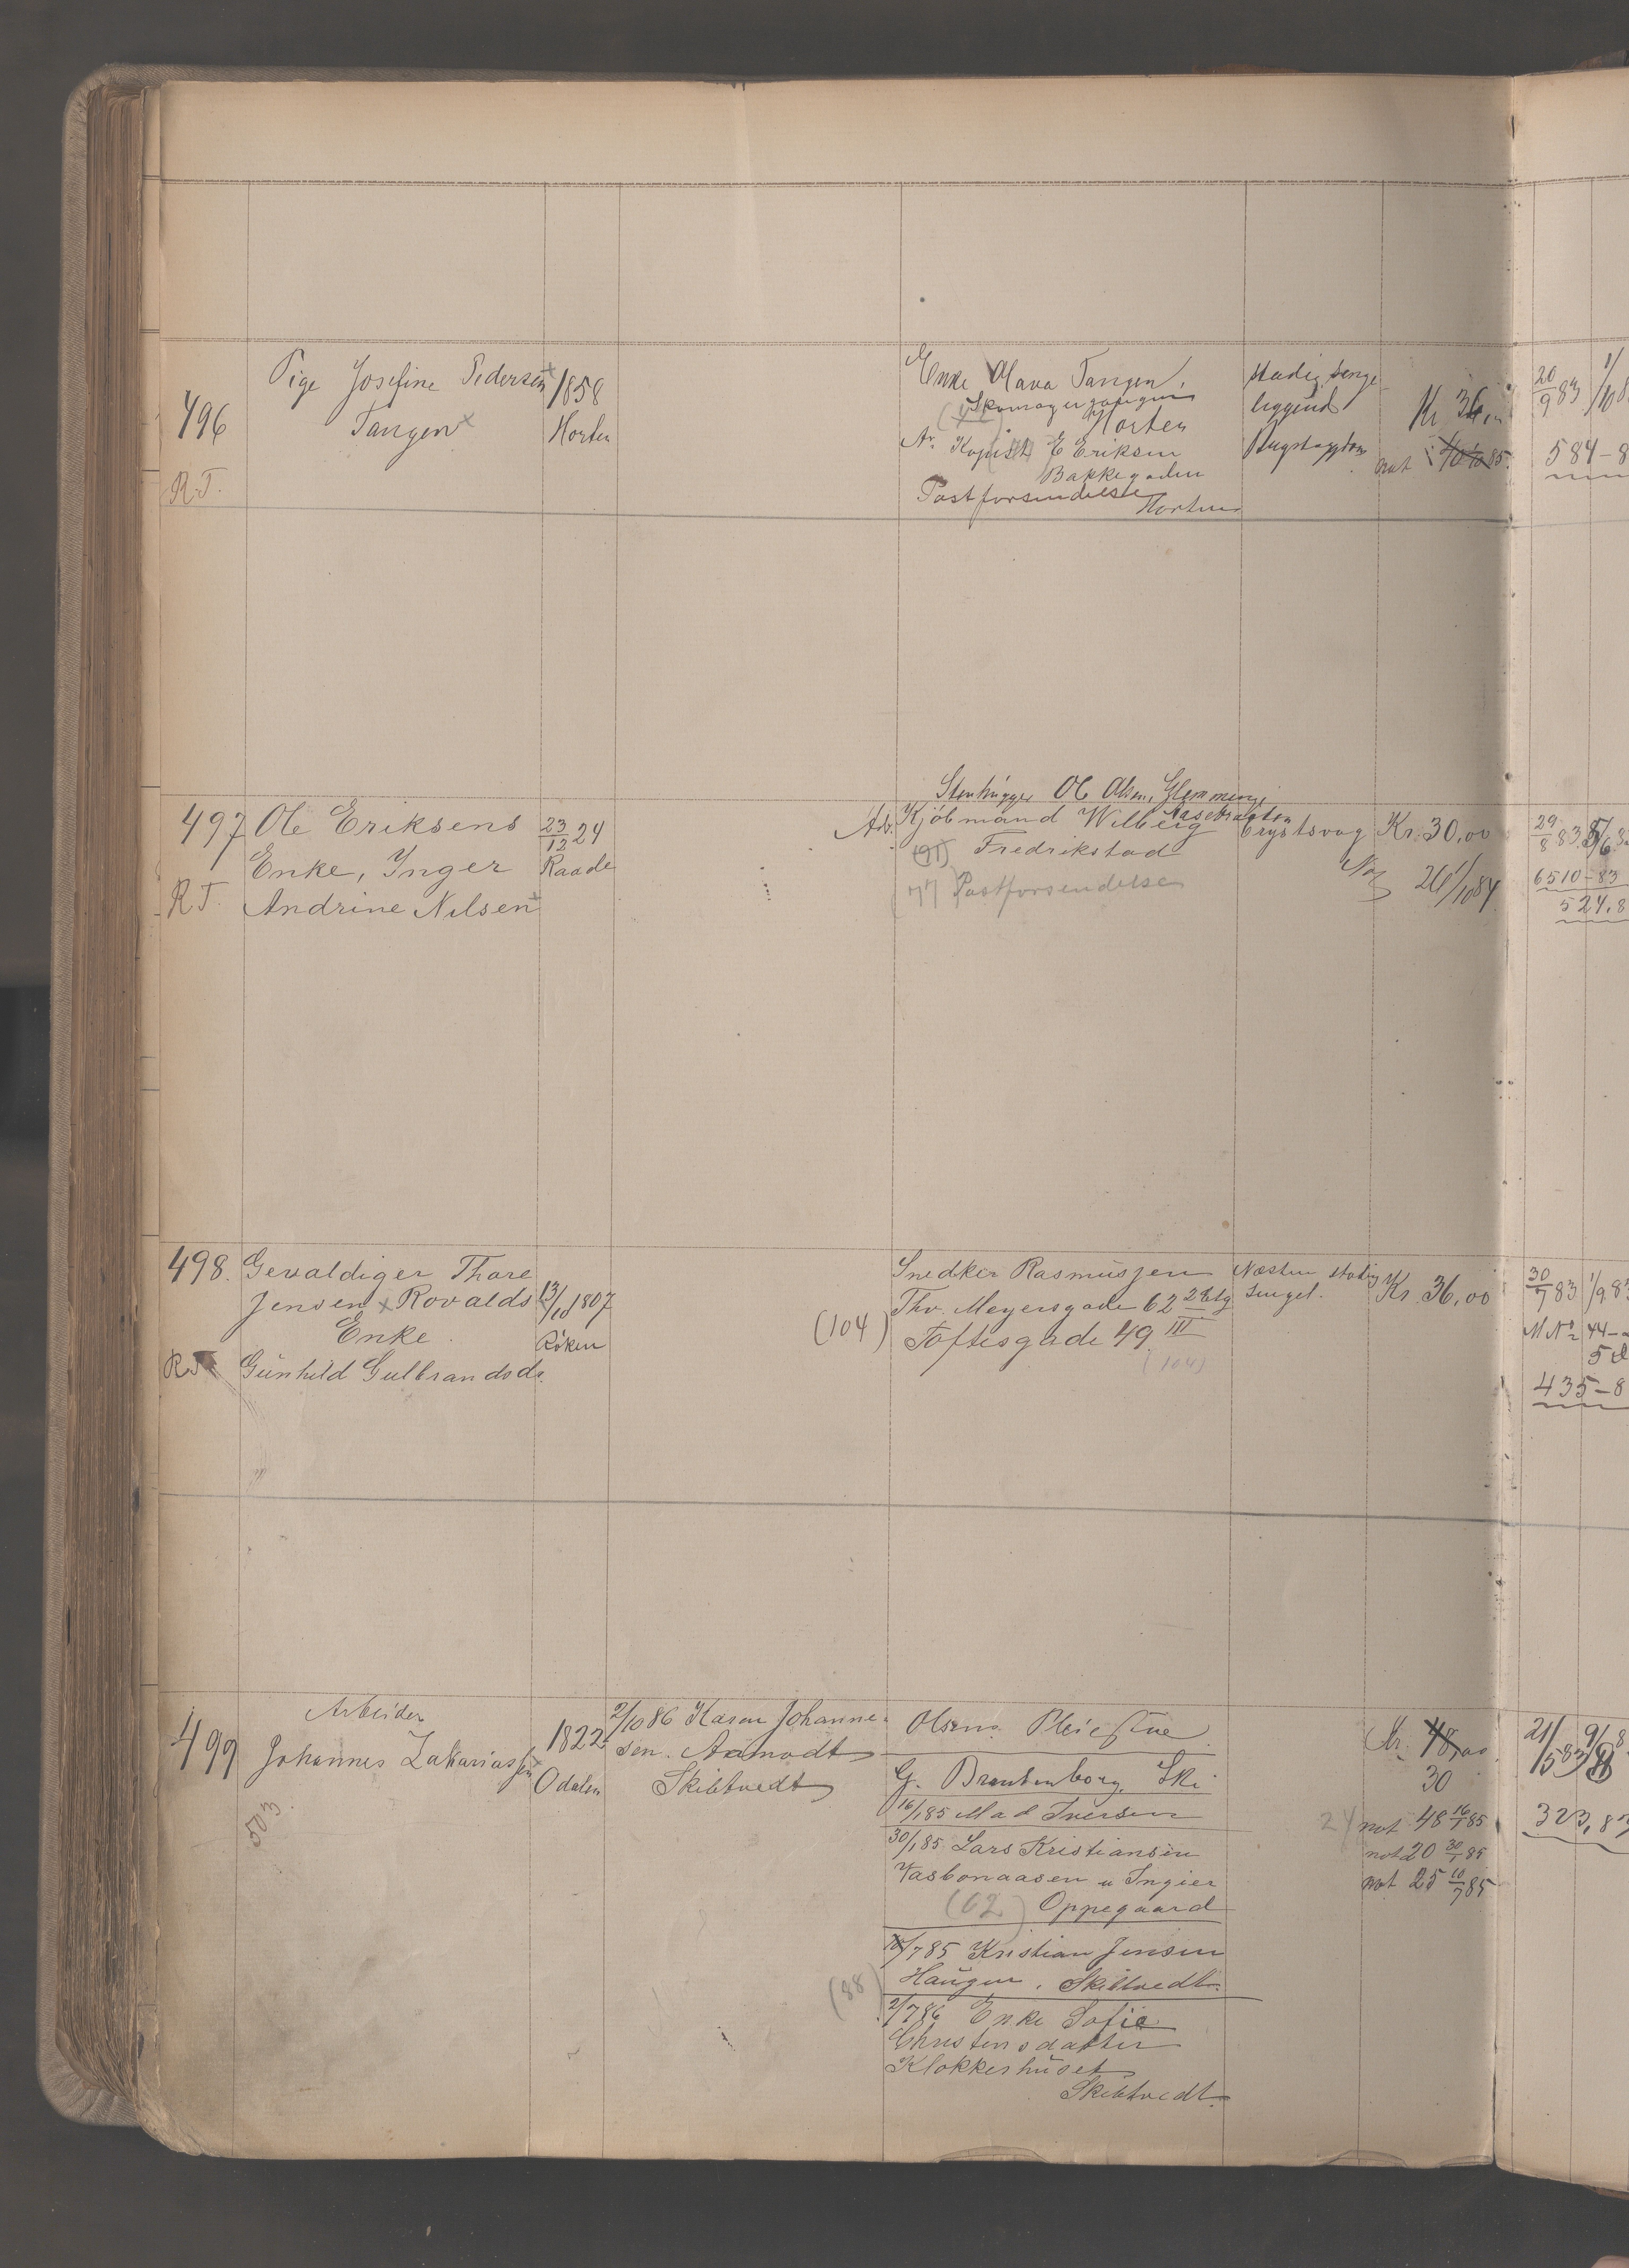 496
R.T.
Pige Josefine Pedersen
Tangen
1858
Horten
Enke Olava Tangen,
Skomagergangen
Horten
Kopist E Eriksen
Bakkegaden
Postforsendelse
Horten
stadig senge
liggende
Kr 36,00
not
20/9 83
584-8
Stenhugger Ol. Olsen, Glemminge
497
R.T.
Ole Eriksens
Enke, Inger
Andrine Nilsen
23/12 24
Raade
Adr. Kjöbmand Wilberg
(91) Fredrikstad
77 Postforsendelse
Brystsvag
Kr. 30,00
26/10 84
29/8 83
6510-83
524.8
498.
Gevaldiger Thore
Jensen Rovalds
Enke.
Gunhild Gulbrandsdr.
13/10 1807
Röken
Snedker Rasmussen
Thv. Meyersgade 62 2 Etg
(104) Toftesgade 49 III
(104)
Næsten stadig
senget.
Kr. 36,00
30/7 83 1/9 83
M No 44
435-8
499
Arbeider
Johannes Zakariassen
503
1822
Odalen
2/10 86 Karen Johanne-
sen. Aamodt
Skibtvedt
Olsens Pleiestue
G. Brandenborg, Ski
16/1 85 Mad Iversen
30/1 85 Lars Kristiansen
Vasbonaasen u Ingier
(62) Oppegaard
10/7 85 Kristian Jensen
Haugen. Skibtvedt.
(88)
2/7 86 Enke Sofie
Christensdatter
Klokkerhuset
Skibtvedt.
Kr. 48,00
30
24 not 48 16/1 85
not 20 30/1 85
not 25 10/7 85
21/5 83
323,83